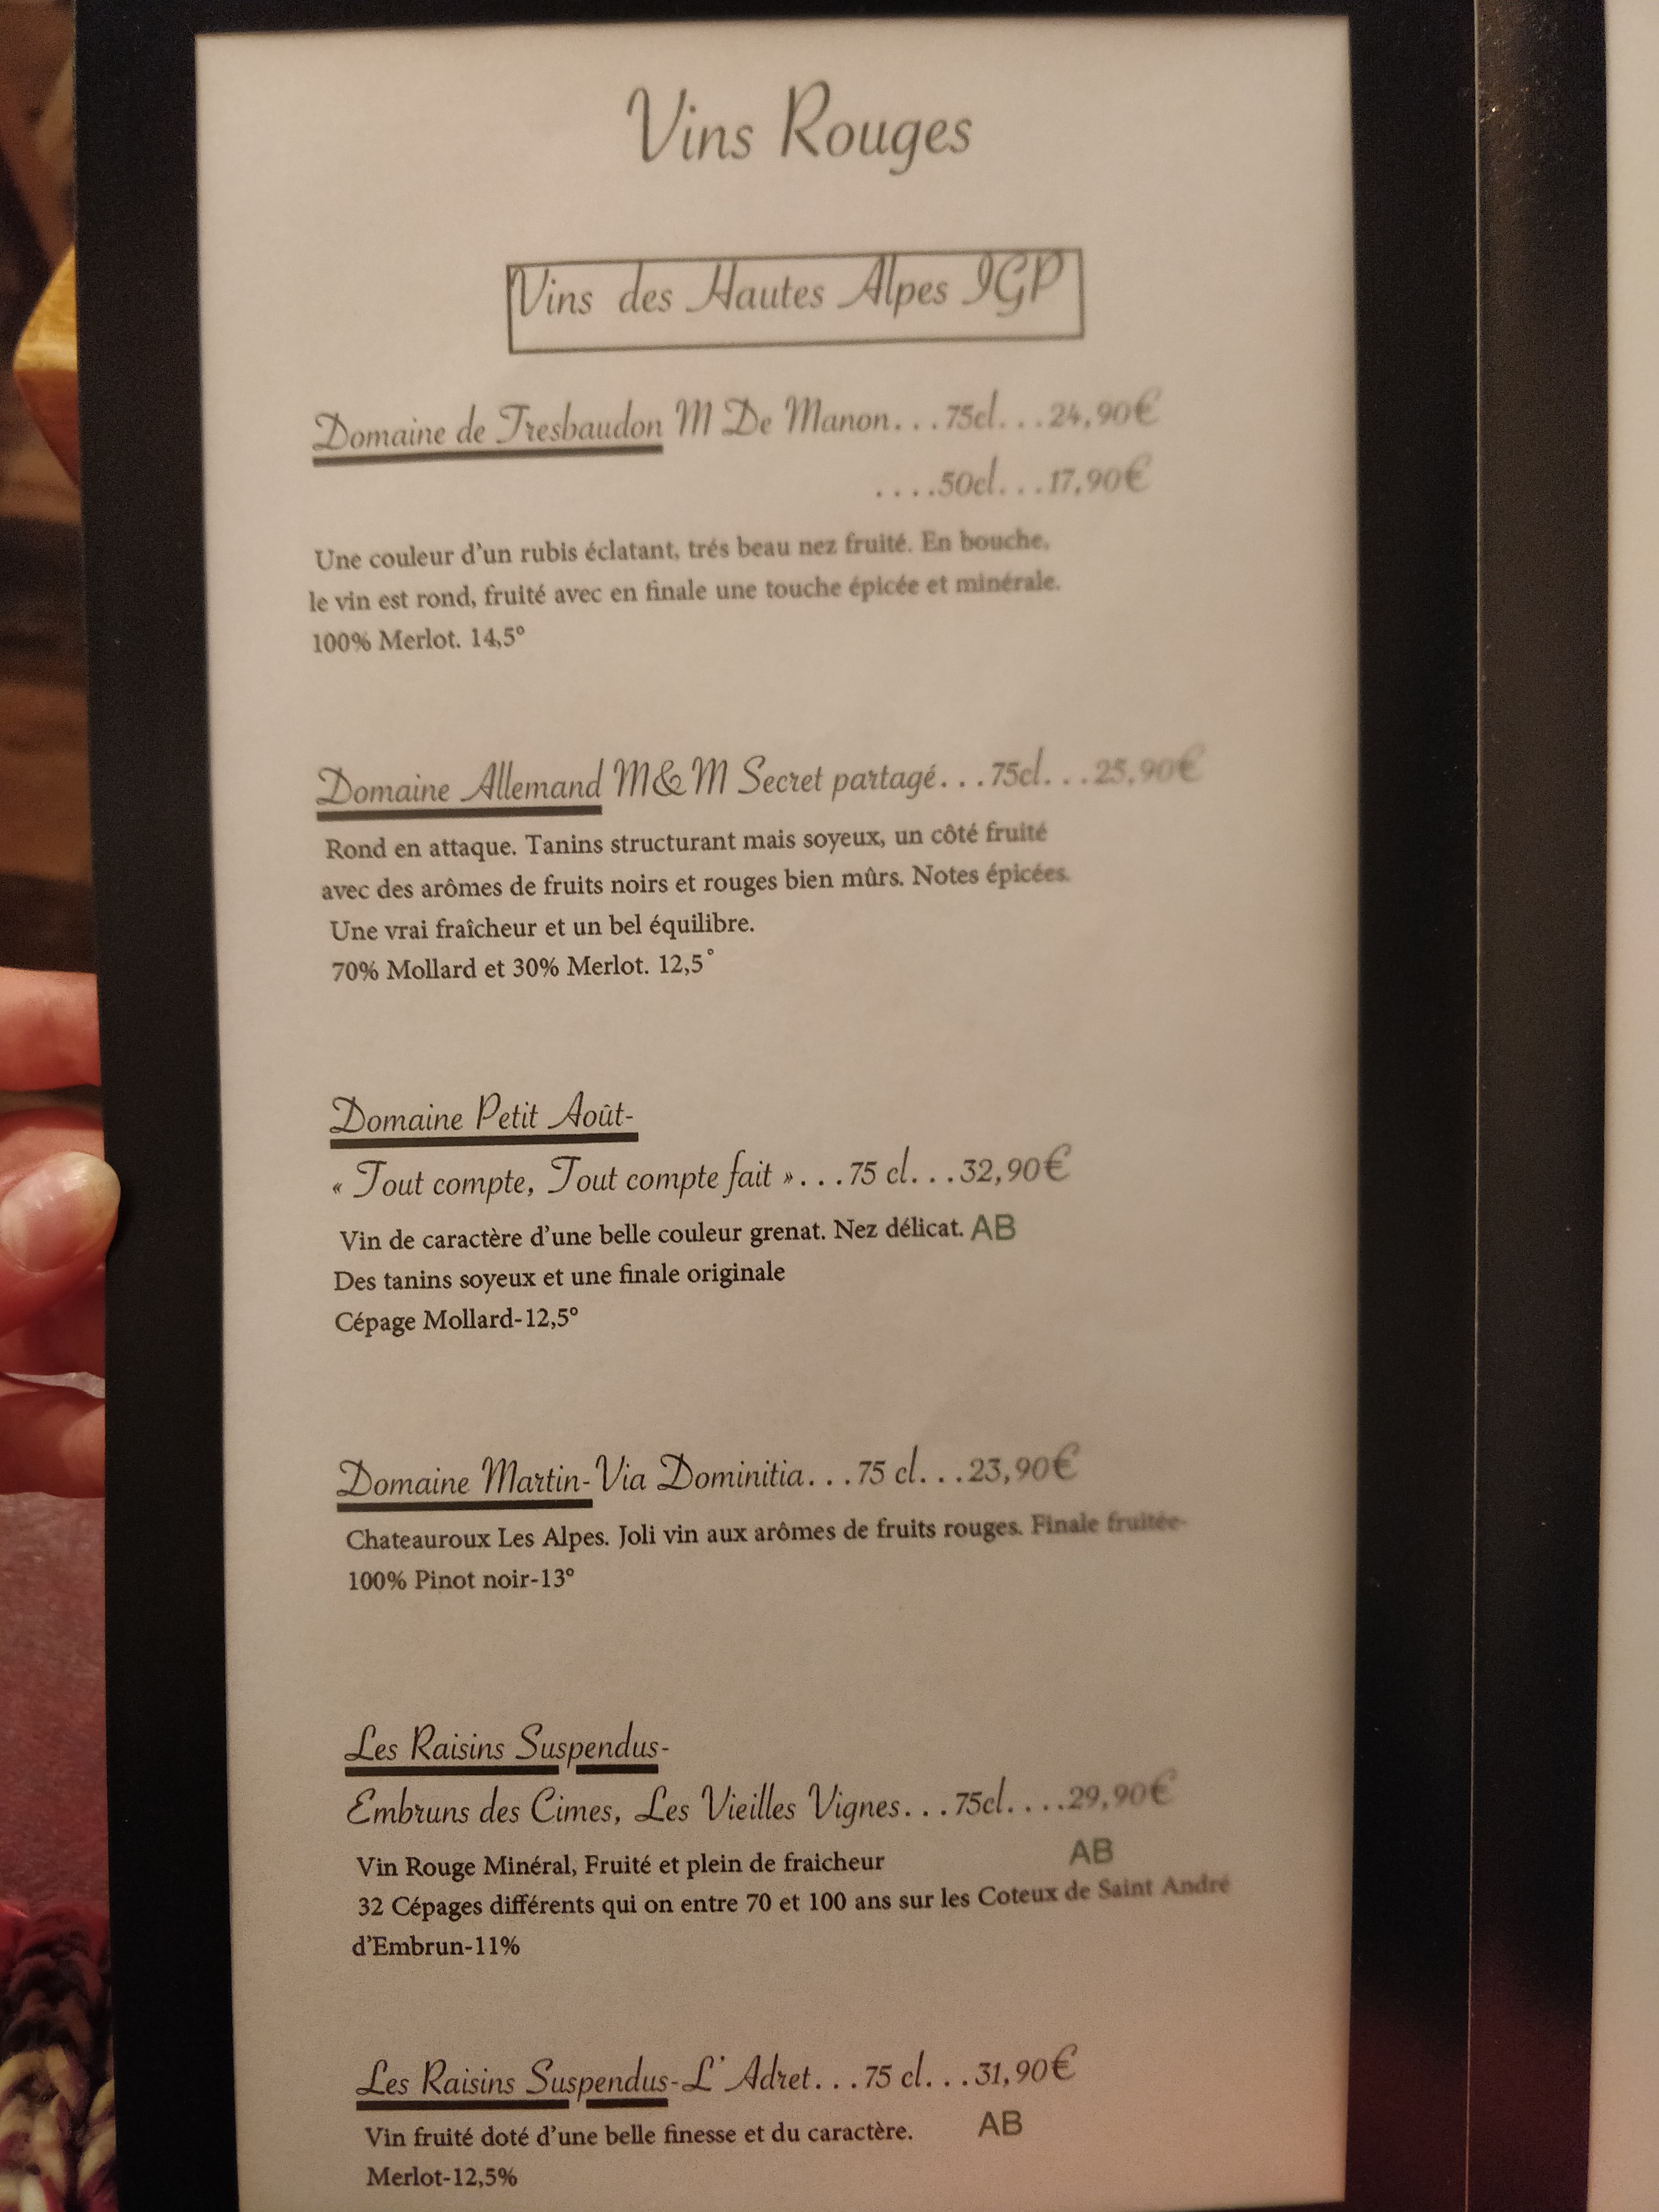 Vins Rouges
Vins des Hautes Alpes IGP
Domaine de Tresbaudon M De Manon...75cl...24,90€
....50cl...17,90€
Une couleur d'un rubis éclatant, trés beau nez fruité. En bouche,
le vin est rond, fruité avec en finale une touche épicée et minérale.
100% Merlot. 14,5°
Domaine Allemand M&M Secret partagé...75cl...25,90€
Rond en attaque. Tanins structurant mais soyeux, un côté fruité
avec des arômes de fruits noirs et rouges bien mûrs. Notes épicées.
Une vrai fraîcheur et un bel équilibre.
70% Mollard et 30% Merlot. 12,5°
Domaine Petit Août-
« Tout compte, Tout compte fait »...75 cl...32,90€
Vin de caractère d'une belle couleur grenat. Nez délicat. AB
Des tanins soyeux et une finale originale
Cépage Mollard-12,5°
Domaine Martin-Via Dominitia...75 cl...23,90€
Chateauroux Les Alpes. Joli vin aux arômes de fruits rouges. Finale fruitée-
100% Pinot noir-13°
Les Raisins Suspendus-
Embruns des Cimes, Les Vieilles Vignes...75cl....29,90€
Vin Rouge Minéral, Fruité et plein de fraicheur AB
32 Cépages différents qui on entre 70 et 100 ans sur les Coteux de Saint André
d'Embrun-11%
Les Raisins Suspendus-L' Adret...75 cl...31,90€
Vin fruité doté d'une belle finesse et du caractère. AB
Merlot-12,5%